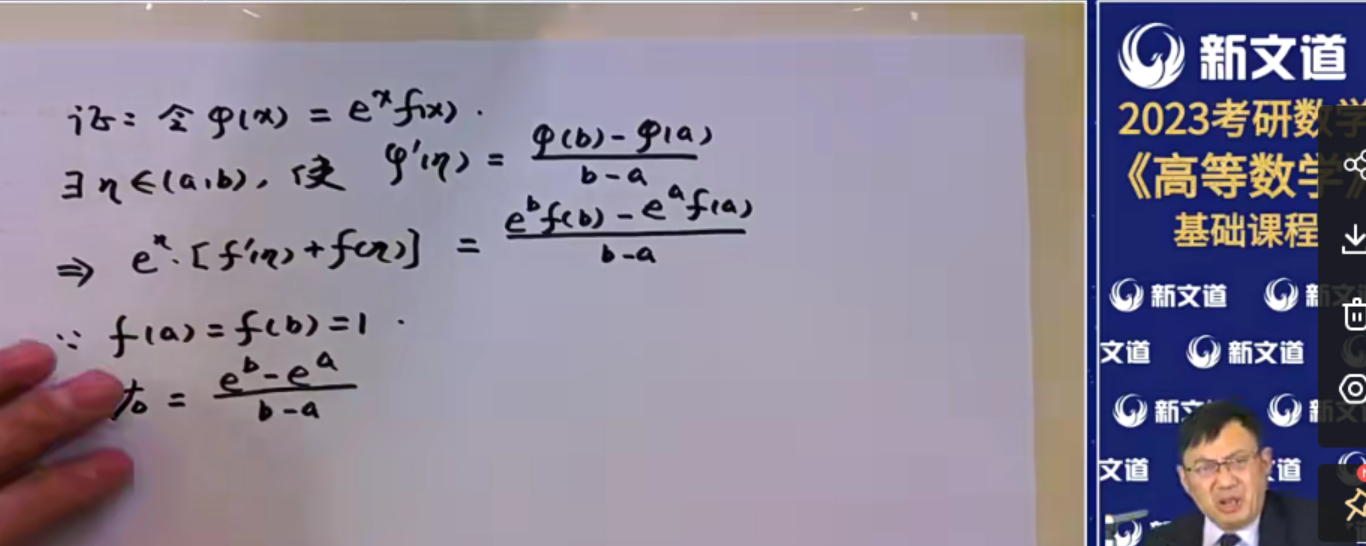 证: 令 φ(x) = eˣf(x).
∃ η∈(a,b), 使 φ'(η) = φ(b)-φ(a) / b-a
⇒ e^η·[f'(η)+f(η)] = e^b f(b) - e^a f(a) / b-a
∵ f(a)=f(b)=1.
右 = e^b - e^a / b-a
新文道
2023考研数学
《高等数学》
基础课程
新文道 新文
文道 新文道
新文 新文
文道 道